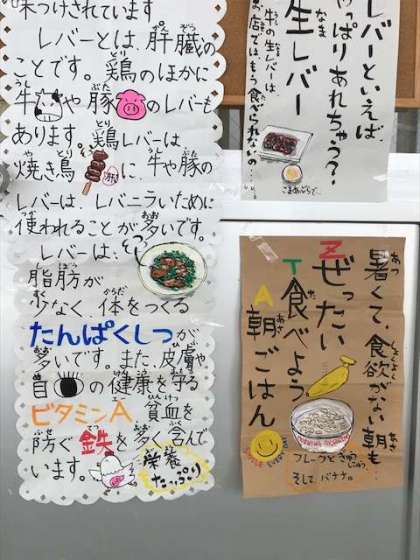 味つけされています
レバーとは、肝臓の
ことです。鶏のほかに
牛や豚のレバーも
あります。鶏レバーは
焼き鳥に、牛や豚の
レバーは、レバニラいために
使われることが多いです。
レバーは、
脂肪が
少なく、体をつくる
たんぱくしつが
多いです。また、皮膚や
目の健康を守る
ビタミンA、貧血を
防ぐ鉄を多く含んで
います。
栄養
たっぷり
レバーといえば、
やっぱりあれちゃう?
生レバー
牛の生レバーは
お店ではもう食べられないの…
ごまあぶらで…
暑くて、食欲がない朝も…
Zぜったい
T食べよう
A朝ごはん
SMILE EVERY DAY
フレークと牛にゅう、
そして バナナ。